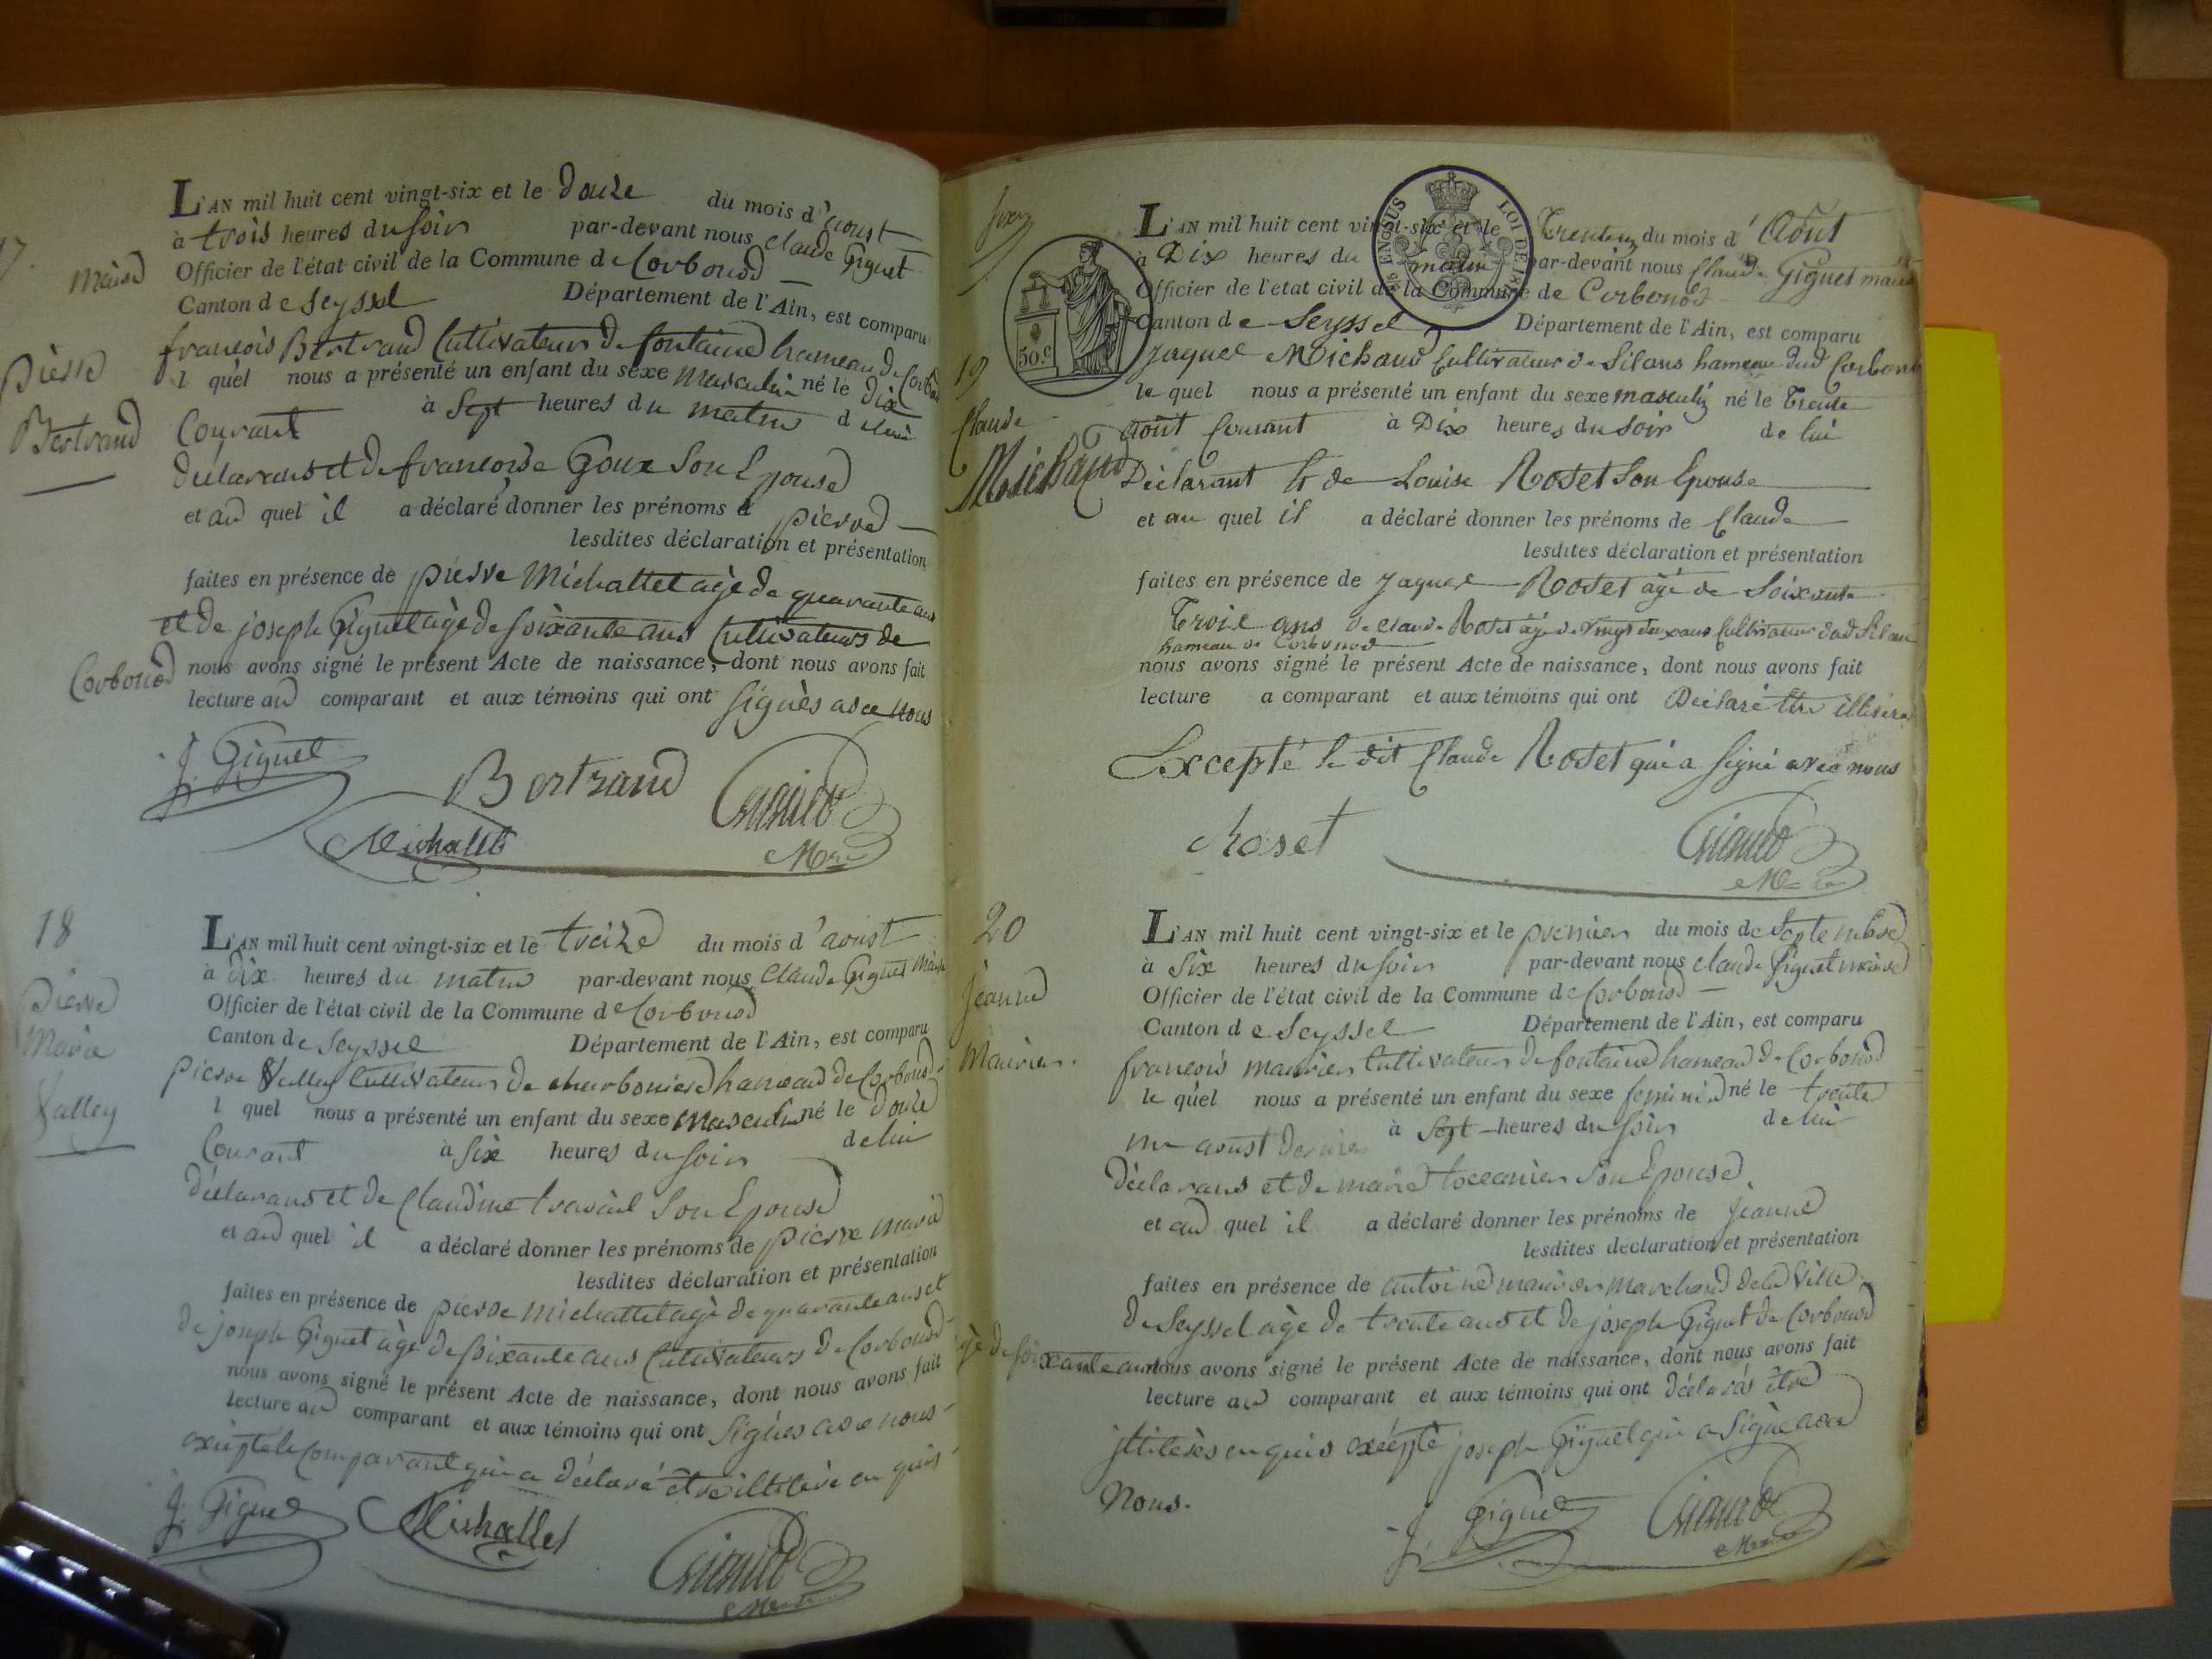 17.
L'AN mil huit cent vingt-six et le douze du mois d'aoust
à trois heures du soir par-devant nous claude Giguet
maire Officier de l'état civil de la Commune de Corbonod
Canton de Seyssel Département de l'Ain, est comparu
françois Bertrand Cultivateur de fontaine hameau de Corbonod
Pierre
Bertrand
l quel nous a présenté un enfant du sexe masculin né le dix
Courant à Sept heures du matin de lui
déclarant et de françoise Goux Son Epouse
et au quel il a déclaré donner les prénoms d pierre
lesdites déclaration et présentation
faites en présence de pierre Michallet agè de quarante ans
et de joseph Giguet agè de soixante ans Cultivateurs de
Corbonod nous avons signé le présent Acte de naissance, dont nous avons fait
lecture au comparant et aux témoins qui ont signès avec nous
J Giguet
Bertrand
Michallet
Mre
18
Pierre
Marie
L'AN mil huit cent vingt-six et le treize du mois d'aoust
à dix heures du matin par-devant nous Claude Giguet Maire
Officier de l'état civil de la Commune de Corbonod
Canton de Seyssel Département de l'Ain, est comparu
pierre Cultivateur de charboniere hameau de Corbonod
l quel nous a présenté un enfant du sexe masculin né le douze
Courant à six heures du soir de lui
déclarant et de Claudine travail Son Epouse
et au quel il a déclaré donner les prénoms de pierre marie
lesdites déclaration et présentation
faites en présence de pierre Michallet agè de quarante ans et
de joseph Giguet agè de soixante ans Cultivateurs de Corbonod
nous avons signé le présent Acte de naissance, dont nous avons fait
lecture au comparant et aux témoins qui ont signès avec nous
exceptè le comparant qui a déclaré être illitère en quis
J Giguet
Michallet
19
Claude
Michaud
30 c.
LOI DE
L'AN mil huit cent vingt-six et le Trente un du mois d'Août
à Dix heures du matin par-devant nous Claude Giguet maire
Officier de l'etat civil de la Commune de Corbonod
Canton de Seyssel Département de l'Ain, est comparu
Jaques Michaud Cultivateur de Silans hameau dud Corbonod
le quel nous a présenté un enfant du sexe masculin né le Trente
août Courant à Dix heures du Soir de lui
Déclarant & de Louise Roset Son Epouse
et au quel il a déclaré donner les prénoms de Claude
lesdites déclaration et présentation
faites en présence de Jaques Roset âgé de Soixante
Trois ans de claude Roset âgé de vingt deux ans Cultivateur dud Silan
hameau de Corbonod
nous avons signé le présent Acte de naissance, dont nous avons fait
lecture a comparant et aux témoins qui ont Déclaré être
Excepté le dit Claude Roset qui a signé avec nous
Roset
20
Jeanne
Maurier
L'AN mil huit cent vingt-six et le premier du mois de Septembre
à Six heures du soir par-devant nous claude Giguet maire
Officier de l'état civil de la Commune de Corbonod
Canton de Seyssel Département de l'Ain, est comparu
françois maurier Cultivateur de fontaine hameau de Corbonod
le quel nous a présenté un enfant du sexe feminin né le trente
un aoust dernier à Sept heures du soir de lui
déclarant et de marie Son Epouse
et au quel il a déclaré donner les prénoms de Jeanne
lesdites declaration et présentation
faites en présence de antoine maurier marchand de la Ville
de Seyssel agè de trente ans et de joseph Giguet de Corbonod
agè de soixante ans nous avons signé le présent Acte de naissance, dont nous avons fait
lecture au comparant et aux témoins qui ont déclarés être
illitères enquis excèptè joseph Giguet qui a signè avec
Nous.
J Giguet